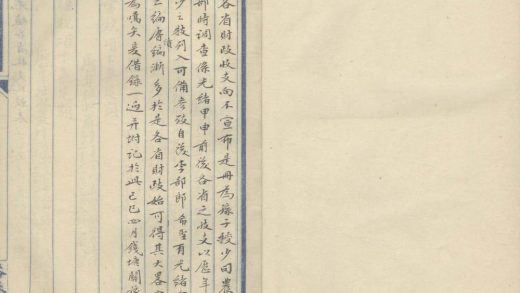 各省財政收支向不宣布是冊為孫子授少司農
部時調查像光緒甲申前後各省之收支以歷年
少之數列入可備參考自後李部郎希聖有光緒
三編庫編漸多於是各省財政始可得其大畧
為嚆矢爰借錄一過并坿記於此己巳四月錢塘關